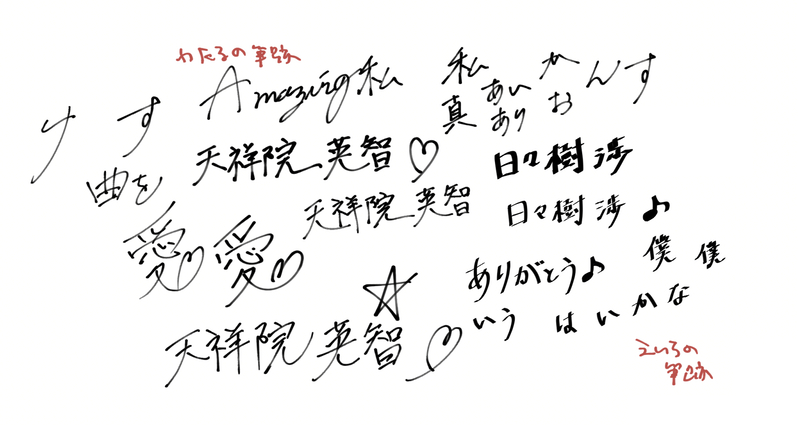 わたるの筆跡
Amazing私 私 か ん す
けす 真 あい お
あり
天祥院英智♡ 日々樹渉
曲を 天祥院英智 日々樹渉♪
愛♡愛♡ ありがとう♪ 僕 僕
☆
天祥院英智♡ いう はいかな
えいちの
筆跡